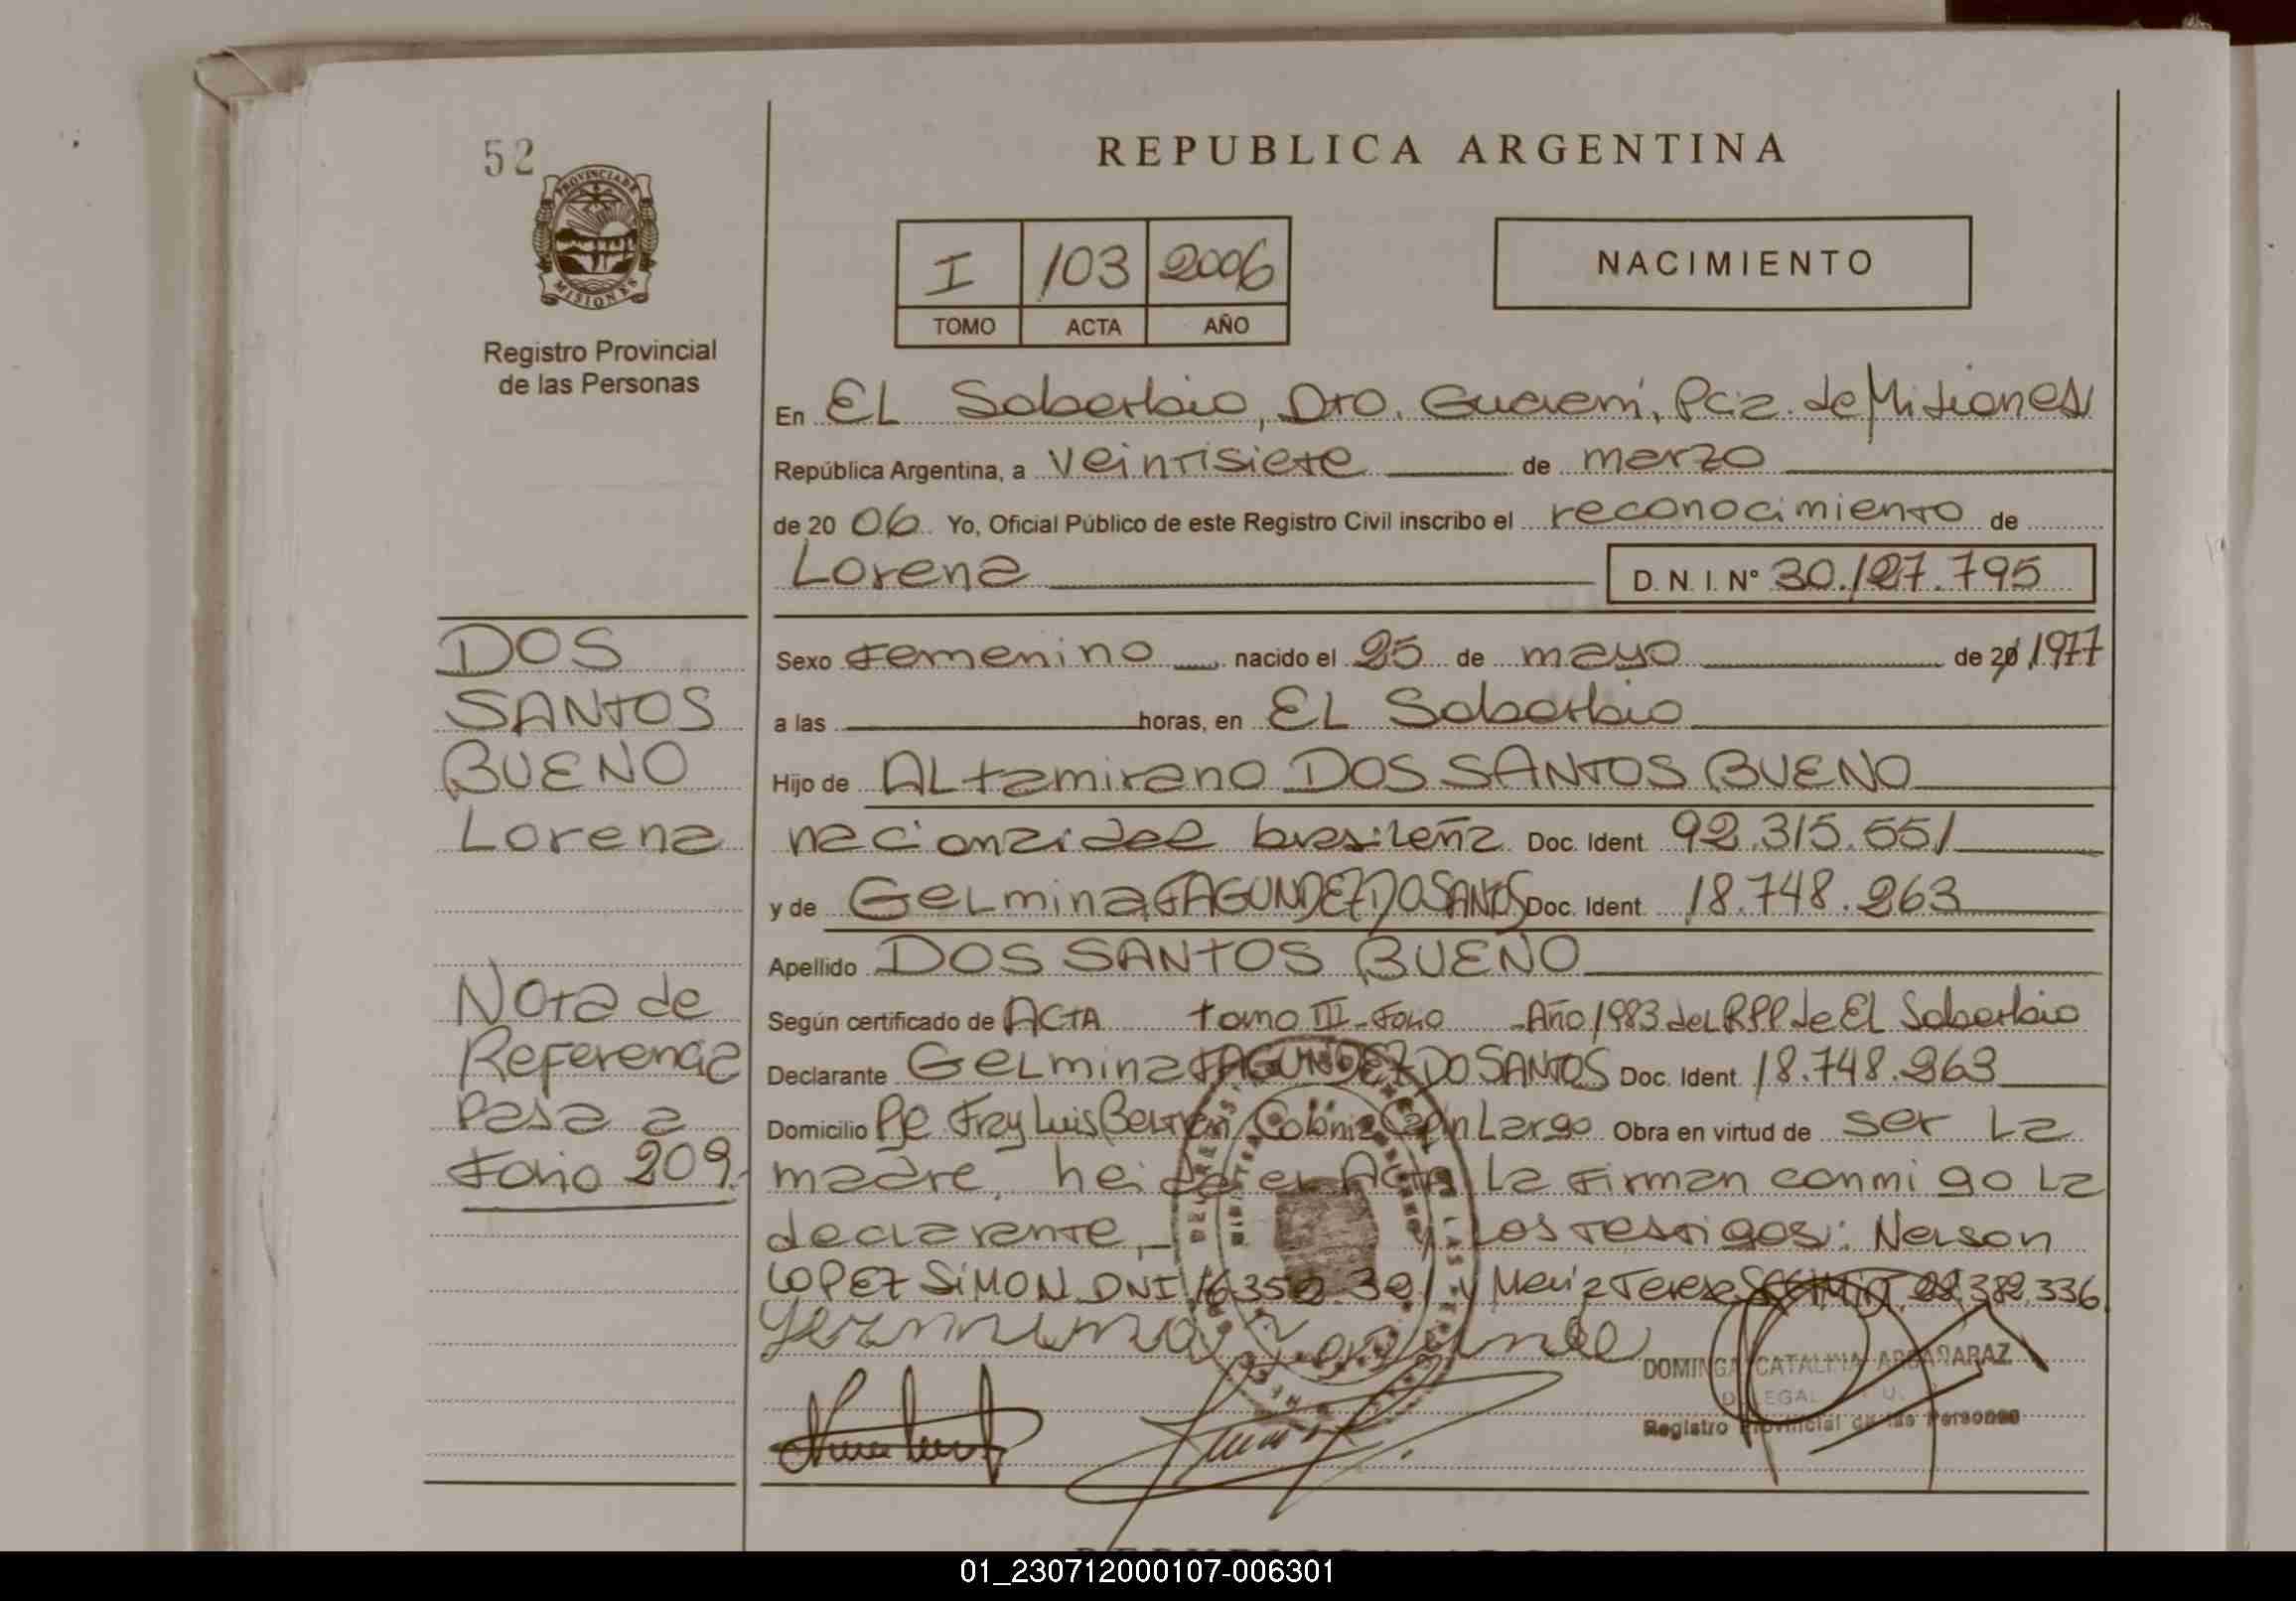 52
REPUBLICA ARGENTINA
PROVINCIA DE
MISIONES
Registro Provincial
de las Personas
I 103 2006
TOMO ACTA AÑO
NACIMIENTO
En EL Soberbio, Dto. Guaraní, Pcia. de Misiones
República Argentina, a veintisiete de marzo
de 20 06 Yo, Oficial Público de este Registro Civil inscribo el reconocimiento de
Lorena D. N. I. N° 30.127.795
Sexo Femenino nacido el 25 de mayo de 20 1977
a las horas, en EL Soberbio
Hijo de ALtamirano DOS SANTOS BUENO
nacionaidad brasileña Doc. Ident. 92.315.551
y de GeLmina FAGUNDEZ DO SANTOS Doc. Ident. 18.748.263
Apellido DOS SANTOS BUENO
Según certificado de ACTA tomo III - Folio - Año 1983 deL RPP de EL Soberbio
Declarante GeLmina FAGUNDEZ DO SANTOS Doc. Ident. 18.748.263
Domicilio Pje Fray Luis Beltran, Colonia Largo Obra en virtud de ser La
madre, heida el Acta La Firman conmigo La
declarante, y Los testigos: Nelson
LOPEZ SIMON DNI y Maria Teresa 336
DOMINGA CATALINA
Registro Provincial de las Personas
DOS
SANTOS
BUENO
Lorena
Nota de
Referencia
Pasa a
Folio 209.
01_230712000107-006301